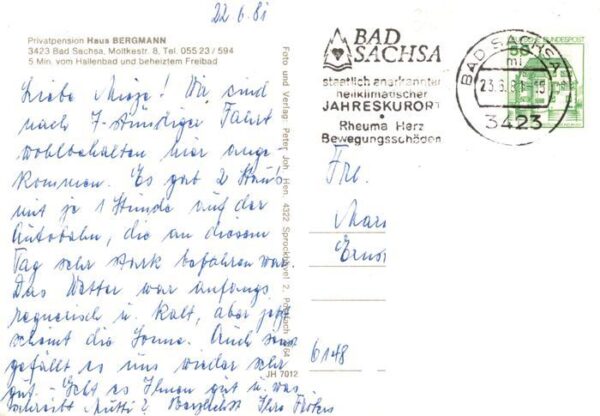 22.6.81
Privatpension Haus BERGMANN
3423 Bad Sachsa, Moltkestr. 8, Tel. 055 23 / 594
5 Min. vom Hallenbad und beheiztem Freibad
Liebe Mieze! Wir sind
nach 7-stündiger Fahrt
wohlbehalten hier ange-
kommen. Es gab 2 Staus
mit je 1 Stunde auf der
Autobahn, die an diesem
Tag sehr stark befahren war.
Das Wetter war anfangs
regnerisch u. kalt, aber jetzt
scheint die Sonne. Auch sonst
gefällt es uns wieder sehr
gut. - Geht es Ihnen gut u. was
schreibt Mutti? Herzlichst Ihre
Foto und Verlag: Peter Joh. Hen, 4322 Sprockhövel 2, Postfach
JH 7012
BAD
SACHSA
staatlich anerkannter
heilklimatischer
JAHRESKURORT
Rheuma Herz
Bewegungsschäden
BAD SACHSA 1
23.6.81-15
3423
BUNDESPOST
50
Frl.
6148